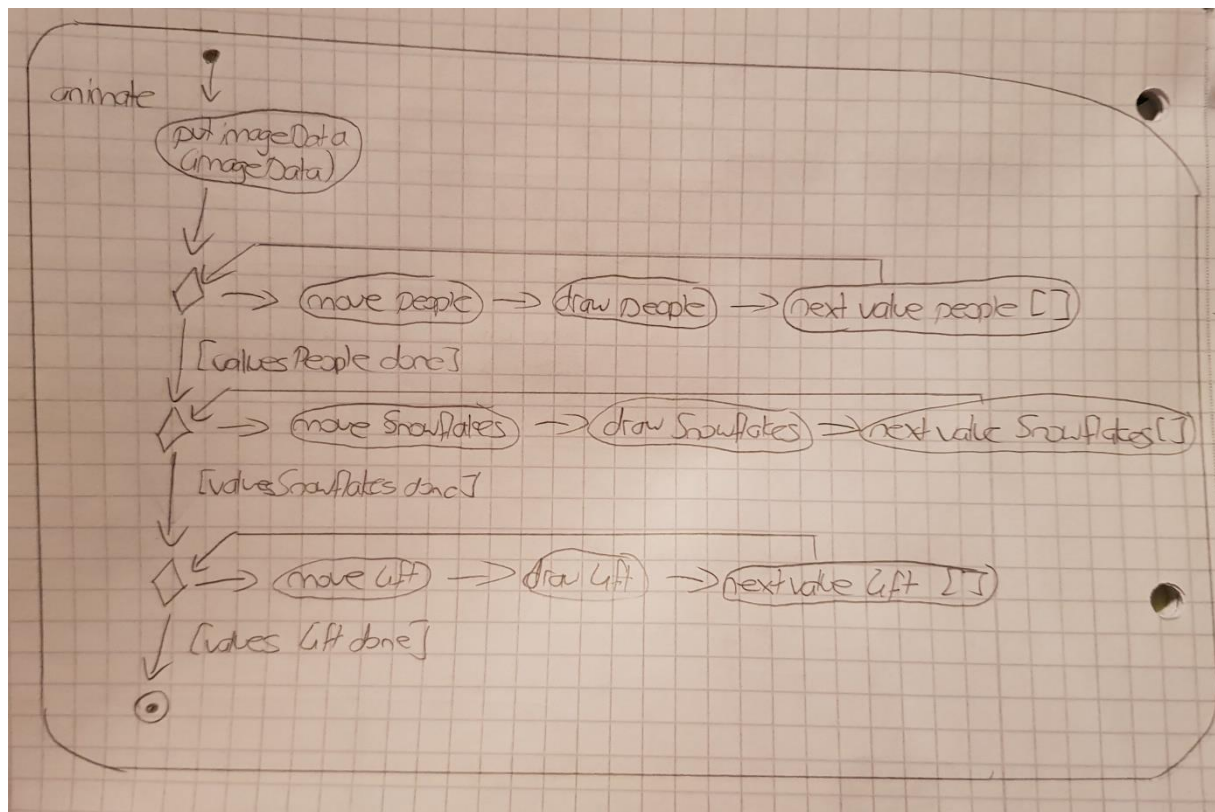 animate
putimageData
(imageData)
move people
draw people
next value people []
[valuesPeople done]
move Snowflakes
draw Snowflakes
next value Snowflakes[]
[valuesSnowflakes done]
move lift
draw lift
next value lift []
[values lift done]